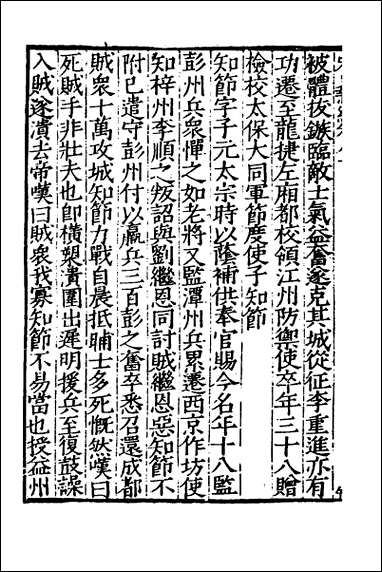 被體抜鏃臨敵士氣益奮遂克其城從征李重進亦有
功遷至龍捷左廂都校領江州防禦使卒年三十八贈
檢校太保大同軍節度使子知節
知節字子元太宗時以蔭補供奉官賜今名年十八監
彭州兵衆憚之如老將又監潭州兵累遷西京作坊使
知梓州李順之叛詔與劉繼恩同討賊繼恩惡知節不
附已遣守彭州付以羸兵三百彭之奮卒悉召還成都
賊衆十萬攻城知節力戰自晨抵晡士多死慨然嘆曰
死賊手非壯夫也卽橫槊潰圍出遲明援兵至復鼓譟
入賊遂潰去帝嘆曰賊衆我寡知節不易當也授益州